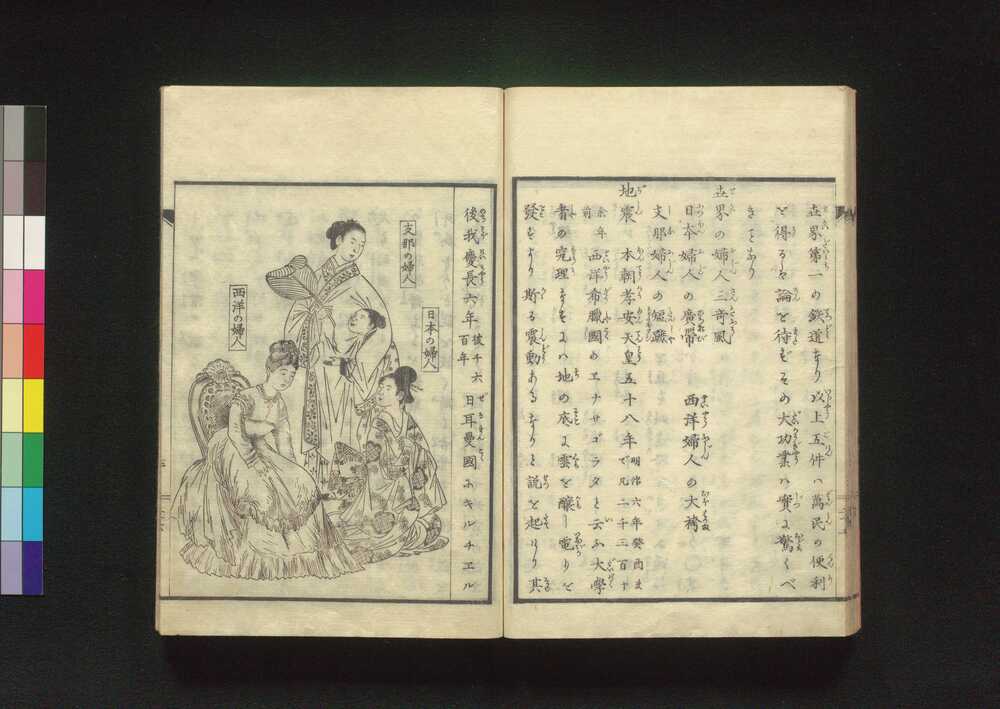 世界第一の鉄道なり以上五件ハ萬民の便利
を得るや論を待ずその大功業ハ實に驚くべ
きことなり
世界の婦人三奇風
日本婦人の廣帶 西洋婦人の大袴
支那婦人の短靴
地震 本朝孝安天皇五十八年 明治六年癸酉まで凡二千三百十
余年前 西洋希臘國のエナサゴラタと云ふ大學
者の究理するにハ地の底に雲を釀し電りを
發するより斯る震動あるなりと説を起せり其
後我慶長六年 彼千六百年 日耳曼國にキルチエル
支那の婦人
日本の婦人
西洋の婦人